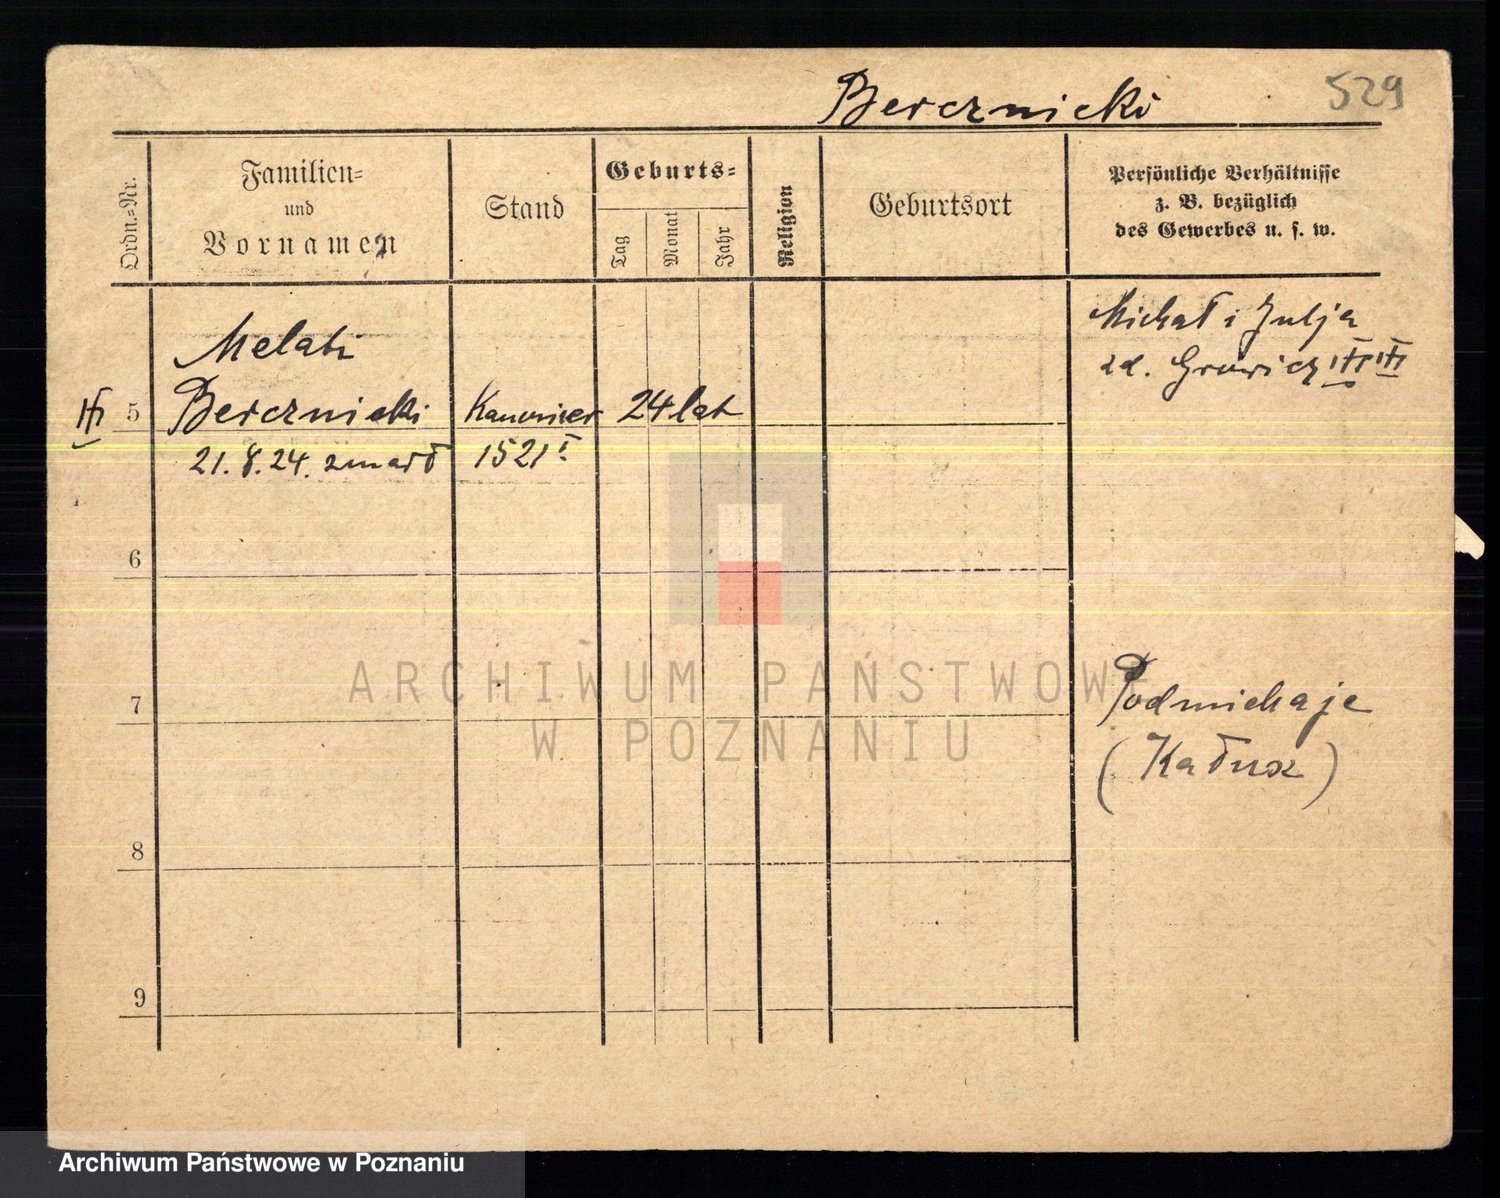 529
Bercznicki
Ordn.=Nr.
Familien=
und
Vornamen
Stand
Geburts=
Tag
Monat
Jahr
Religion
Geburtsort
Persönliche Verhältnisse
z. B. bezüglich
des Gewerbes u. s. w.
Michał i Julja
Melati
5 Bercznicki Kanonier 24 lat
21.8.24. zmarł 1521
6
7
8
9
Podmichaje
(Kałusz)
ARCHIWUM PAŃSTWOWE
W POZNANIU
Archiwum Państwowe w Poznaniu